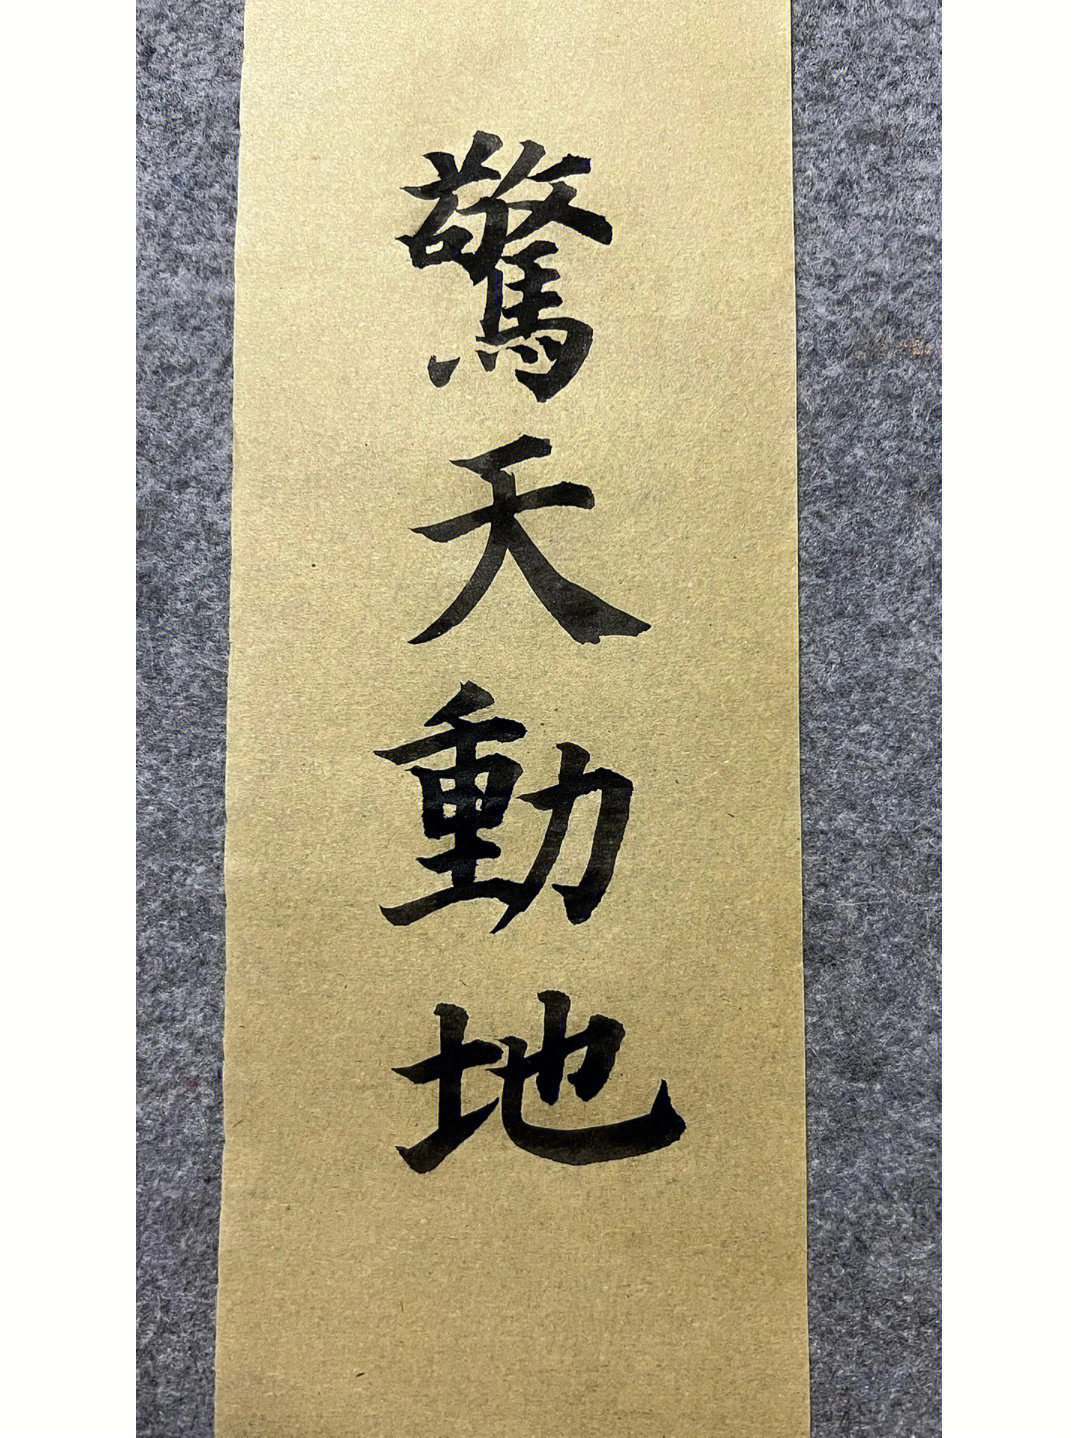 驚天動地